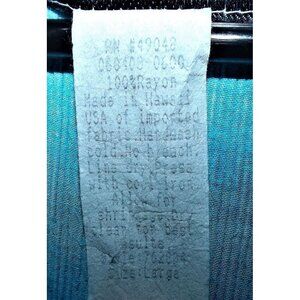 RN #49048
100%Rayon
Made in Hawaii
USA of imported
fabric Handwash
cold No bleach
line dry Press
with cool iron
Allow for
shrinkage Dry
clean for best
results
Size:Large